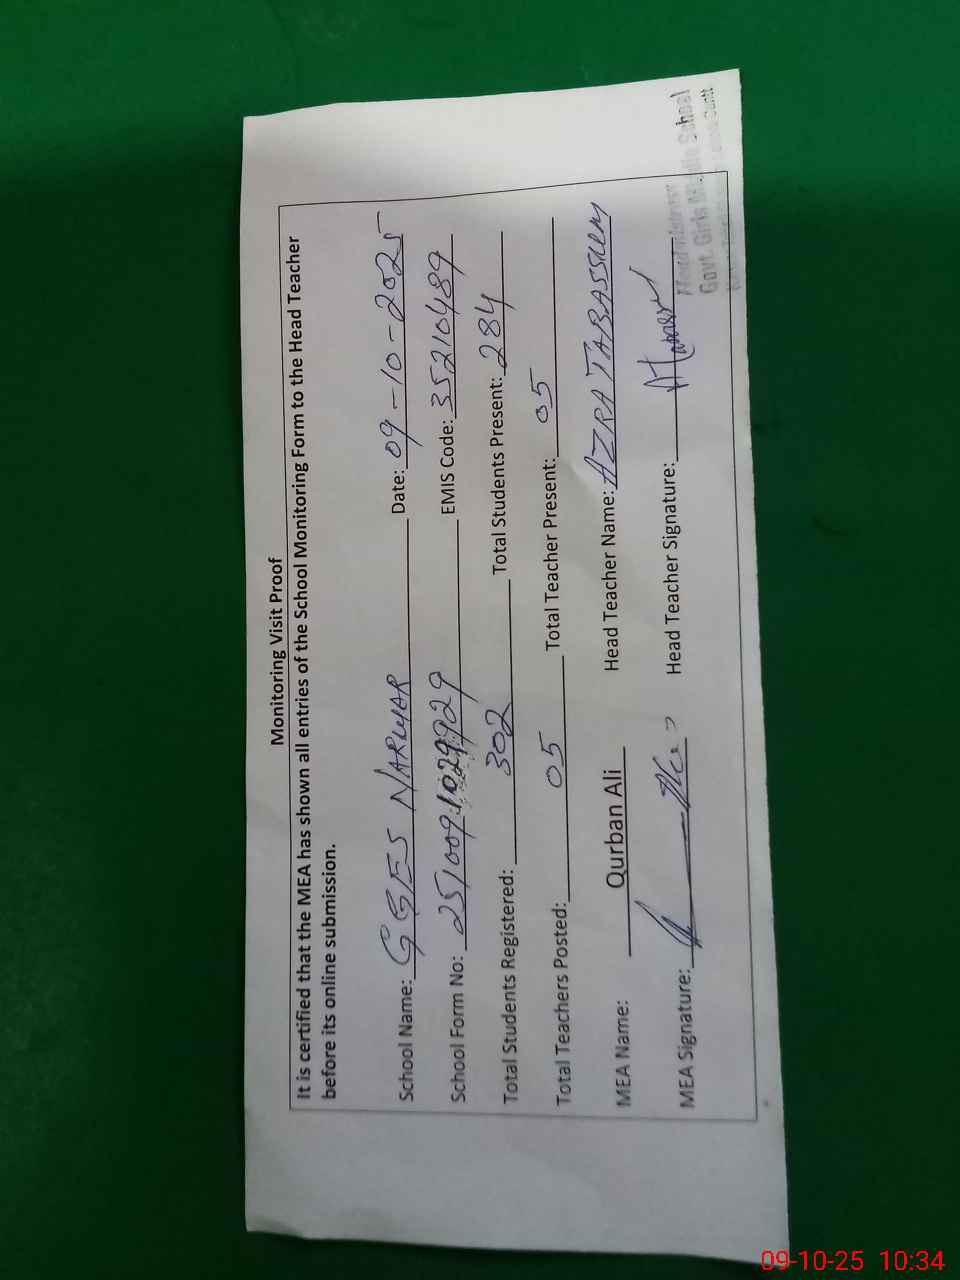 Monitoring Visit Proof
It is certified that the MEA has shown all entries of the School Monitoring Form to the Head Teacher
before its online submission.
School Name: GGES NARWAR Date: 09-10-2025
School Form No: 251009 EMIS Code: 35210489
Total Students Registered: 302 Total Students Present: 284
Total Teachers Posted: 05 Total Teacher Present: 05
MEA Name: Qurban Ali Head Teacher Name: AZRA TABASSUM
MEA Signature: Head Teacher Signature:
Headmistress
Govt. Girls Middle School
09-10-25 10:34